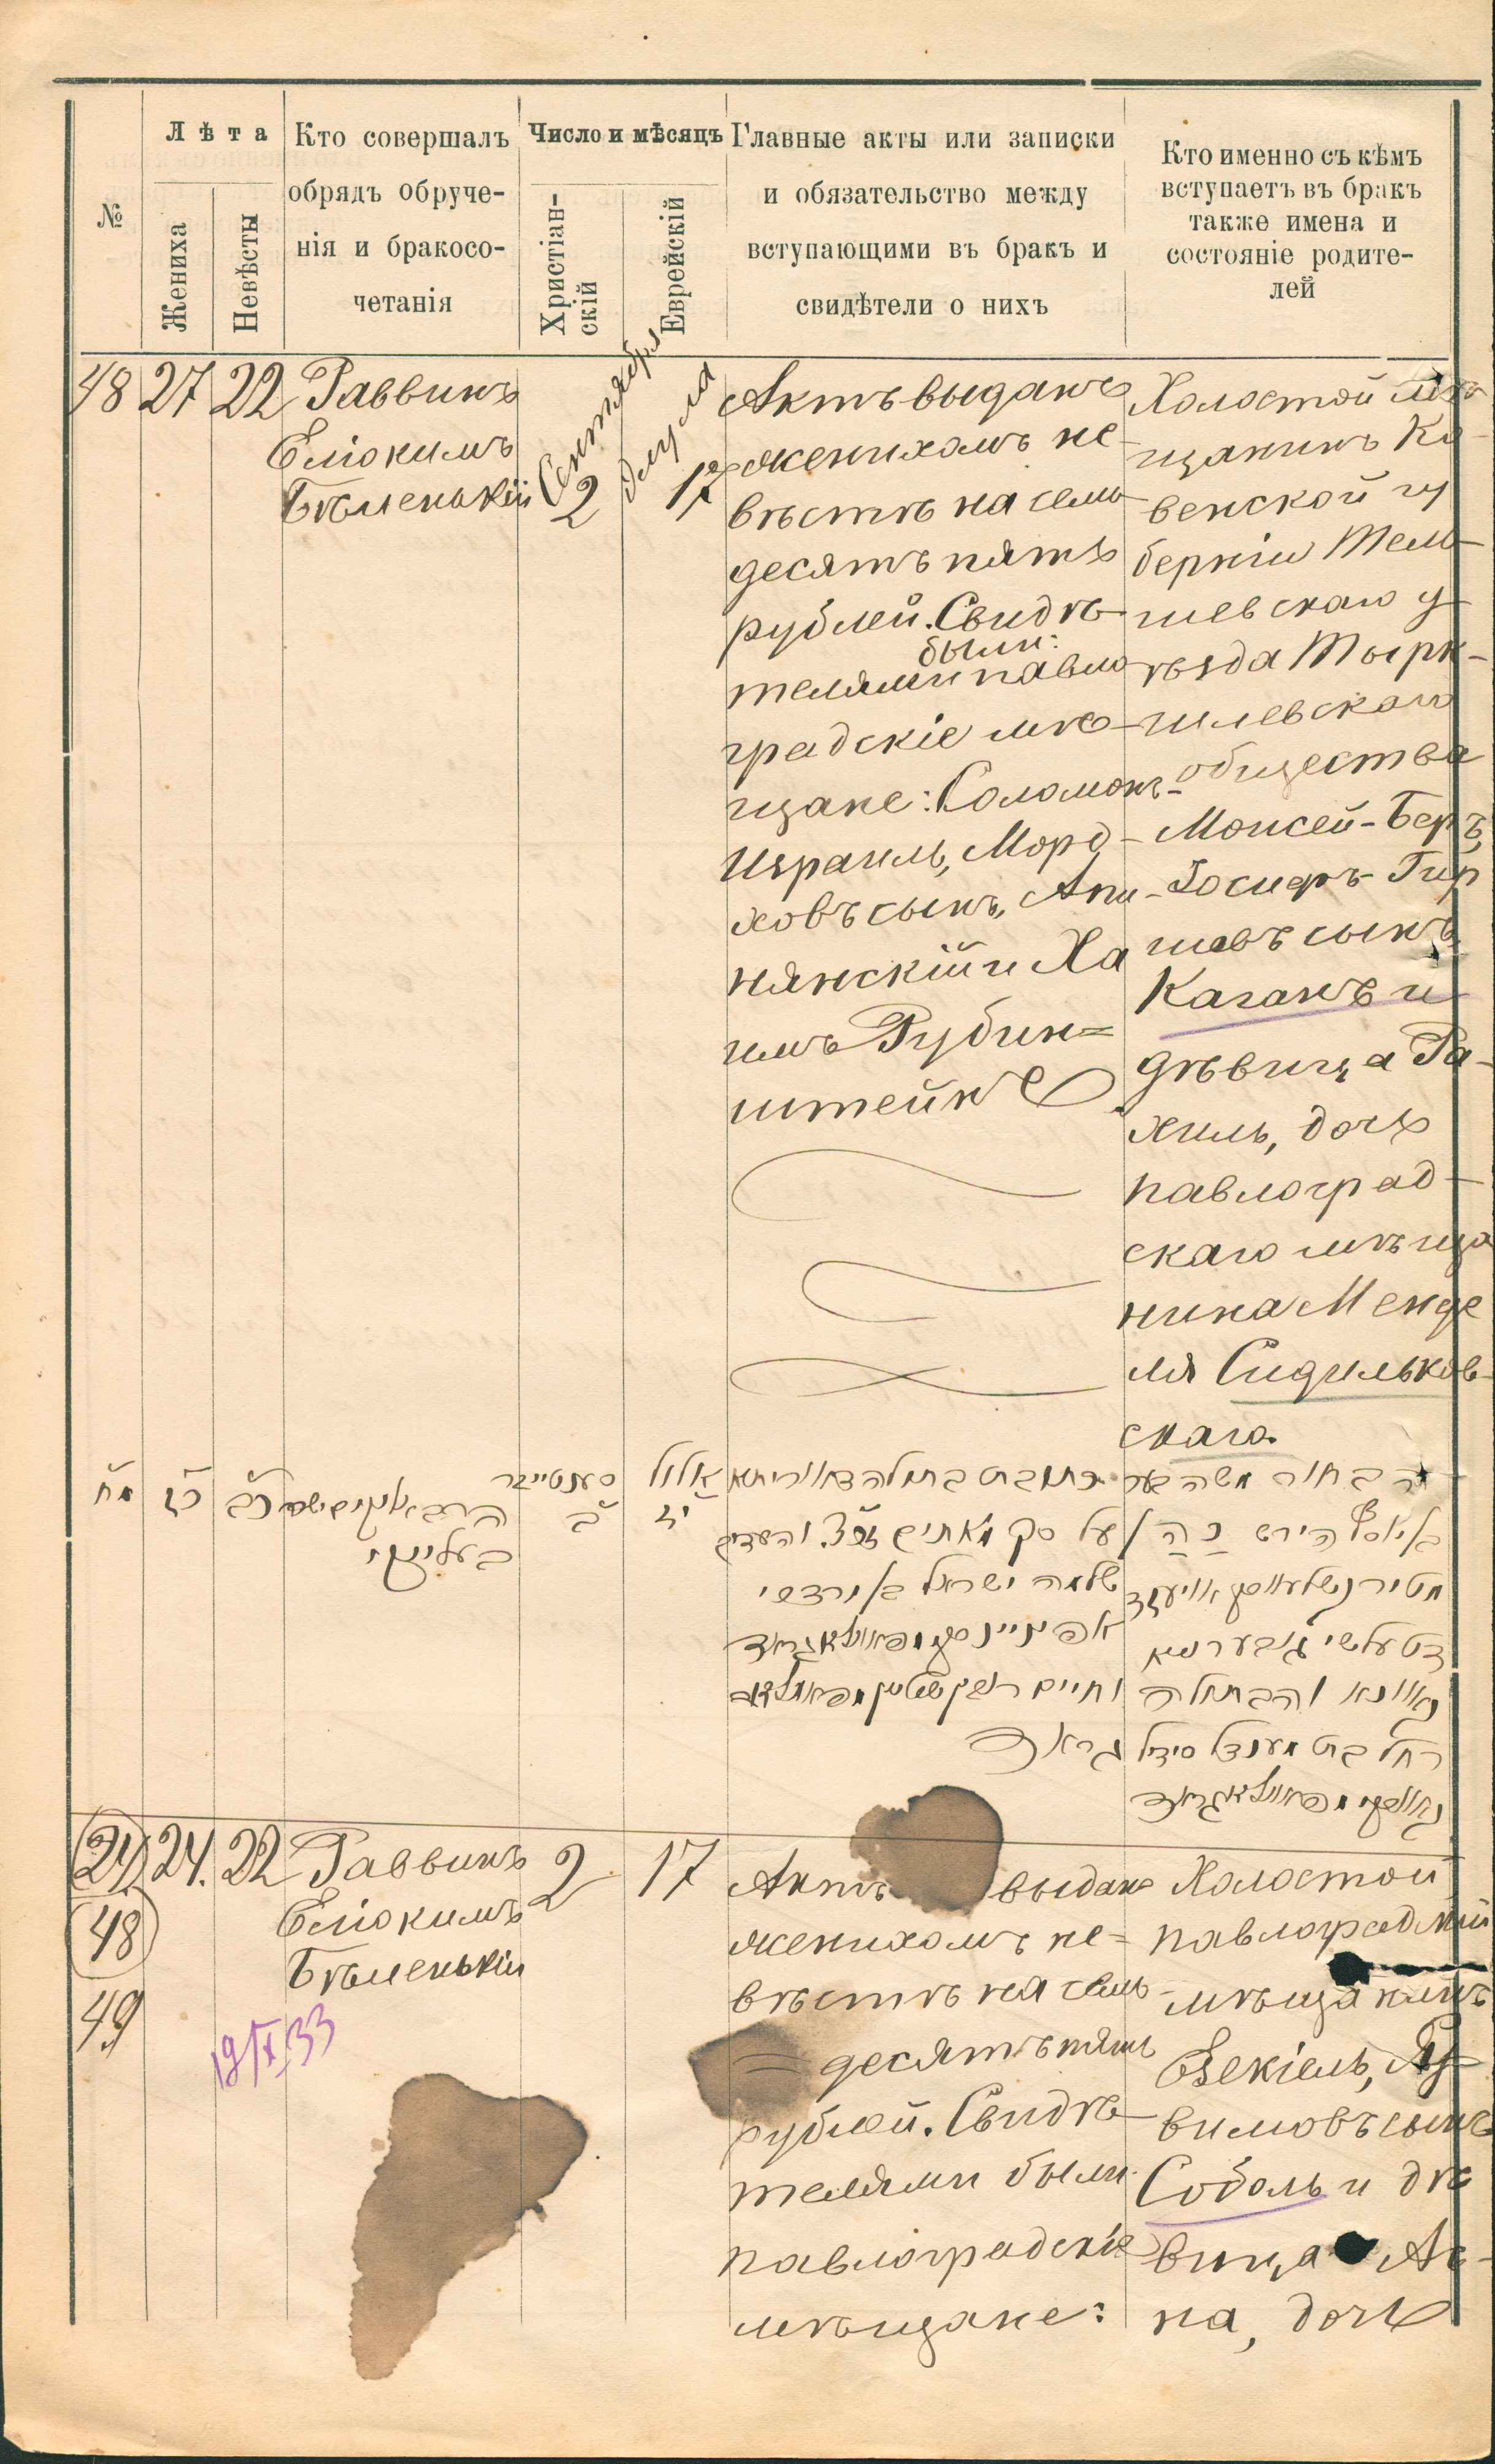 №
Лѣта
Жениха
Невѣсты
Кто совершалъ
обрядъ обруче-
нія и бракосо-
четанія
Число и мѣсяцъ
Христіан-
скій
Еврейскій
Главные акты или записки
и обязательство между
вступающими въ бракъ и
свидѣтели о нихъ
Кто именно съ кѣмъ
вступаетъ въ бракъ
также имена и
состояніе родите-
лей
48
27
22
Раввинъ
Еліокимъ
Бѣленькій
Сентября
2
Элула
17
Актъ выданъ
женихомъ не-
вѣстѣ на семь
десятъ пять
рублей. Свидѣ-
были:
телями павло
градскіе мѣ-
щане: Соломонъ-
Израиль, Морд-
ховъ сынъ, Апи-
нянскій и Ха
имъ Рубин=
штейнъ
Холостой мѣ
щанинъ Ко-
венской гу
берніи Тель-
шевскаго у-
ѣзда Тырк-
шлевскаго
общества
Моисей-Беръ,
Іосифъ-Гир
шовъ сынъ
Каганъ и
дѣвица Ра-
хиль, дочь
павлоград-
скаго мѣща
нина Менде
ля Сидильков-
скаго.
מח
כז
כב
הרב אליקים
בעלינקי
סענטייבר
ב
אלול
יז
כתובת בתולה דאורייתא
על סך מאתים והעדים
שלמה ישראל
וחיים
גראד
הבחור משה בער
הירש כהן
והבתולה
רחל בת מענדל סידיל
24.
48
49
24.
22
Раввинъ
Еліокимъ
Бѣленькій
19/X 33
2
17
Актъ выданъ
женихомъ не=
вѣстѣ на семь
десятъ пять
рублей. Свидѣ-
телями были
павлоградскіе
мѣщане:
Холостой
павлоградскій
мѣщанинъ
Езекіель,
вимовъ сынъ
Соболь и дѣ
вица
на, дочь